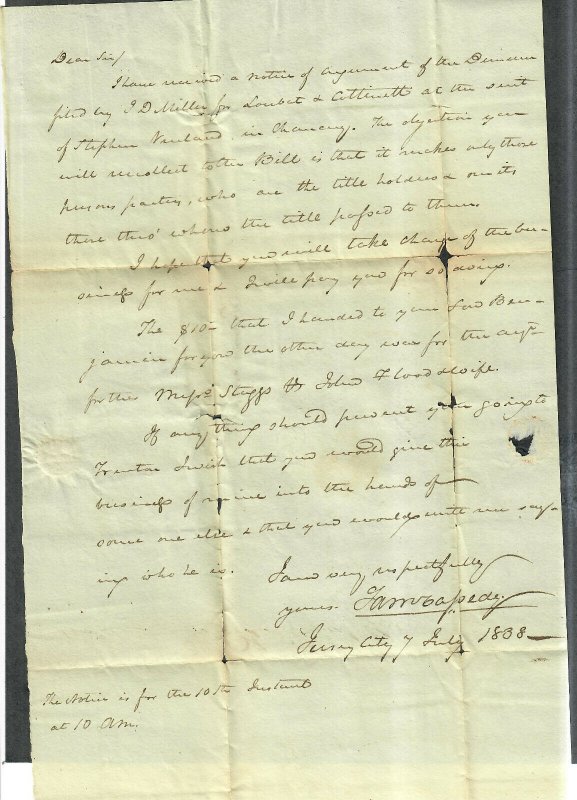 Dear Sir/
I have received a notice of argument of the Demurrer
filed by J D Miller for Loubat & at the suit
of Stephen in Chancery. The objection you
will recollect to the Bill is that it makes only those
persons parties, who are the title holders & omits
those thro' whom the title passed to them.
I hope that you will take charge of the bu-
siness for me & I will pay you for so doing.
The $10 - that I handed to your Son Ben-
jamin for you the other day was for the
for the Messrs. Steggs vs John F & wife.
If any thing should prevent your going to
Trenton I wish that you would give this
business of mine into the hands of
some one else & that you would write me say-
ing who he is.
I am very respectfully
yours
Jersey City 7 July 1838 -
The Notice is for the 10th Instant
at 10 AM.